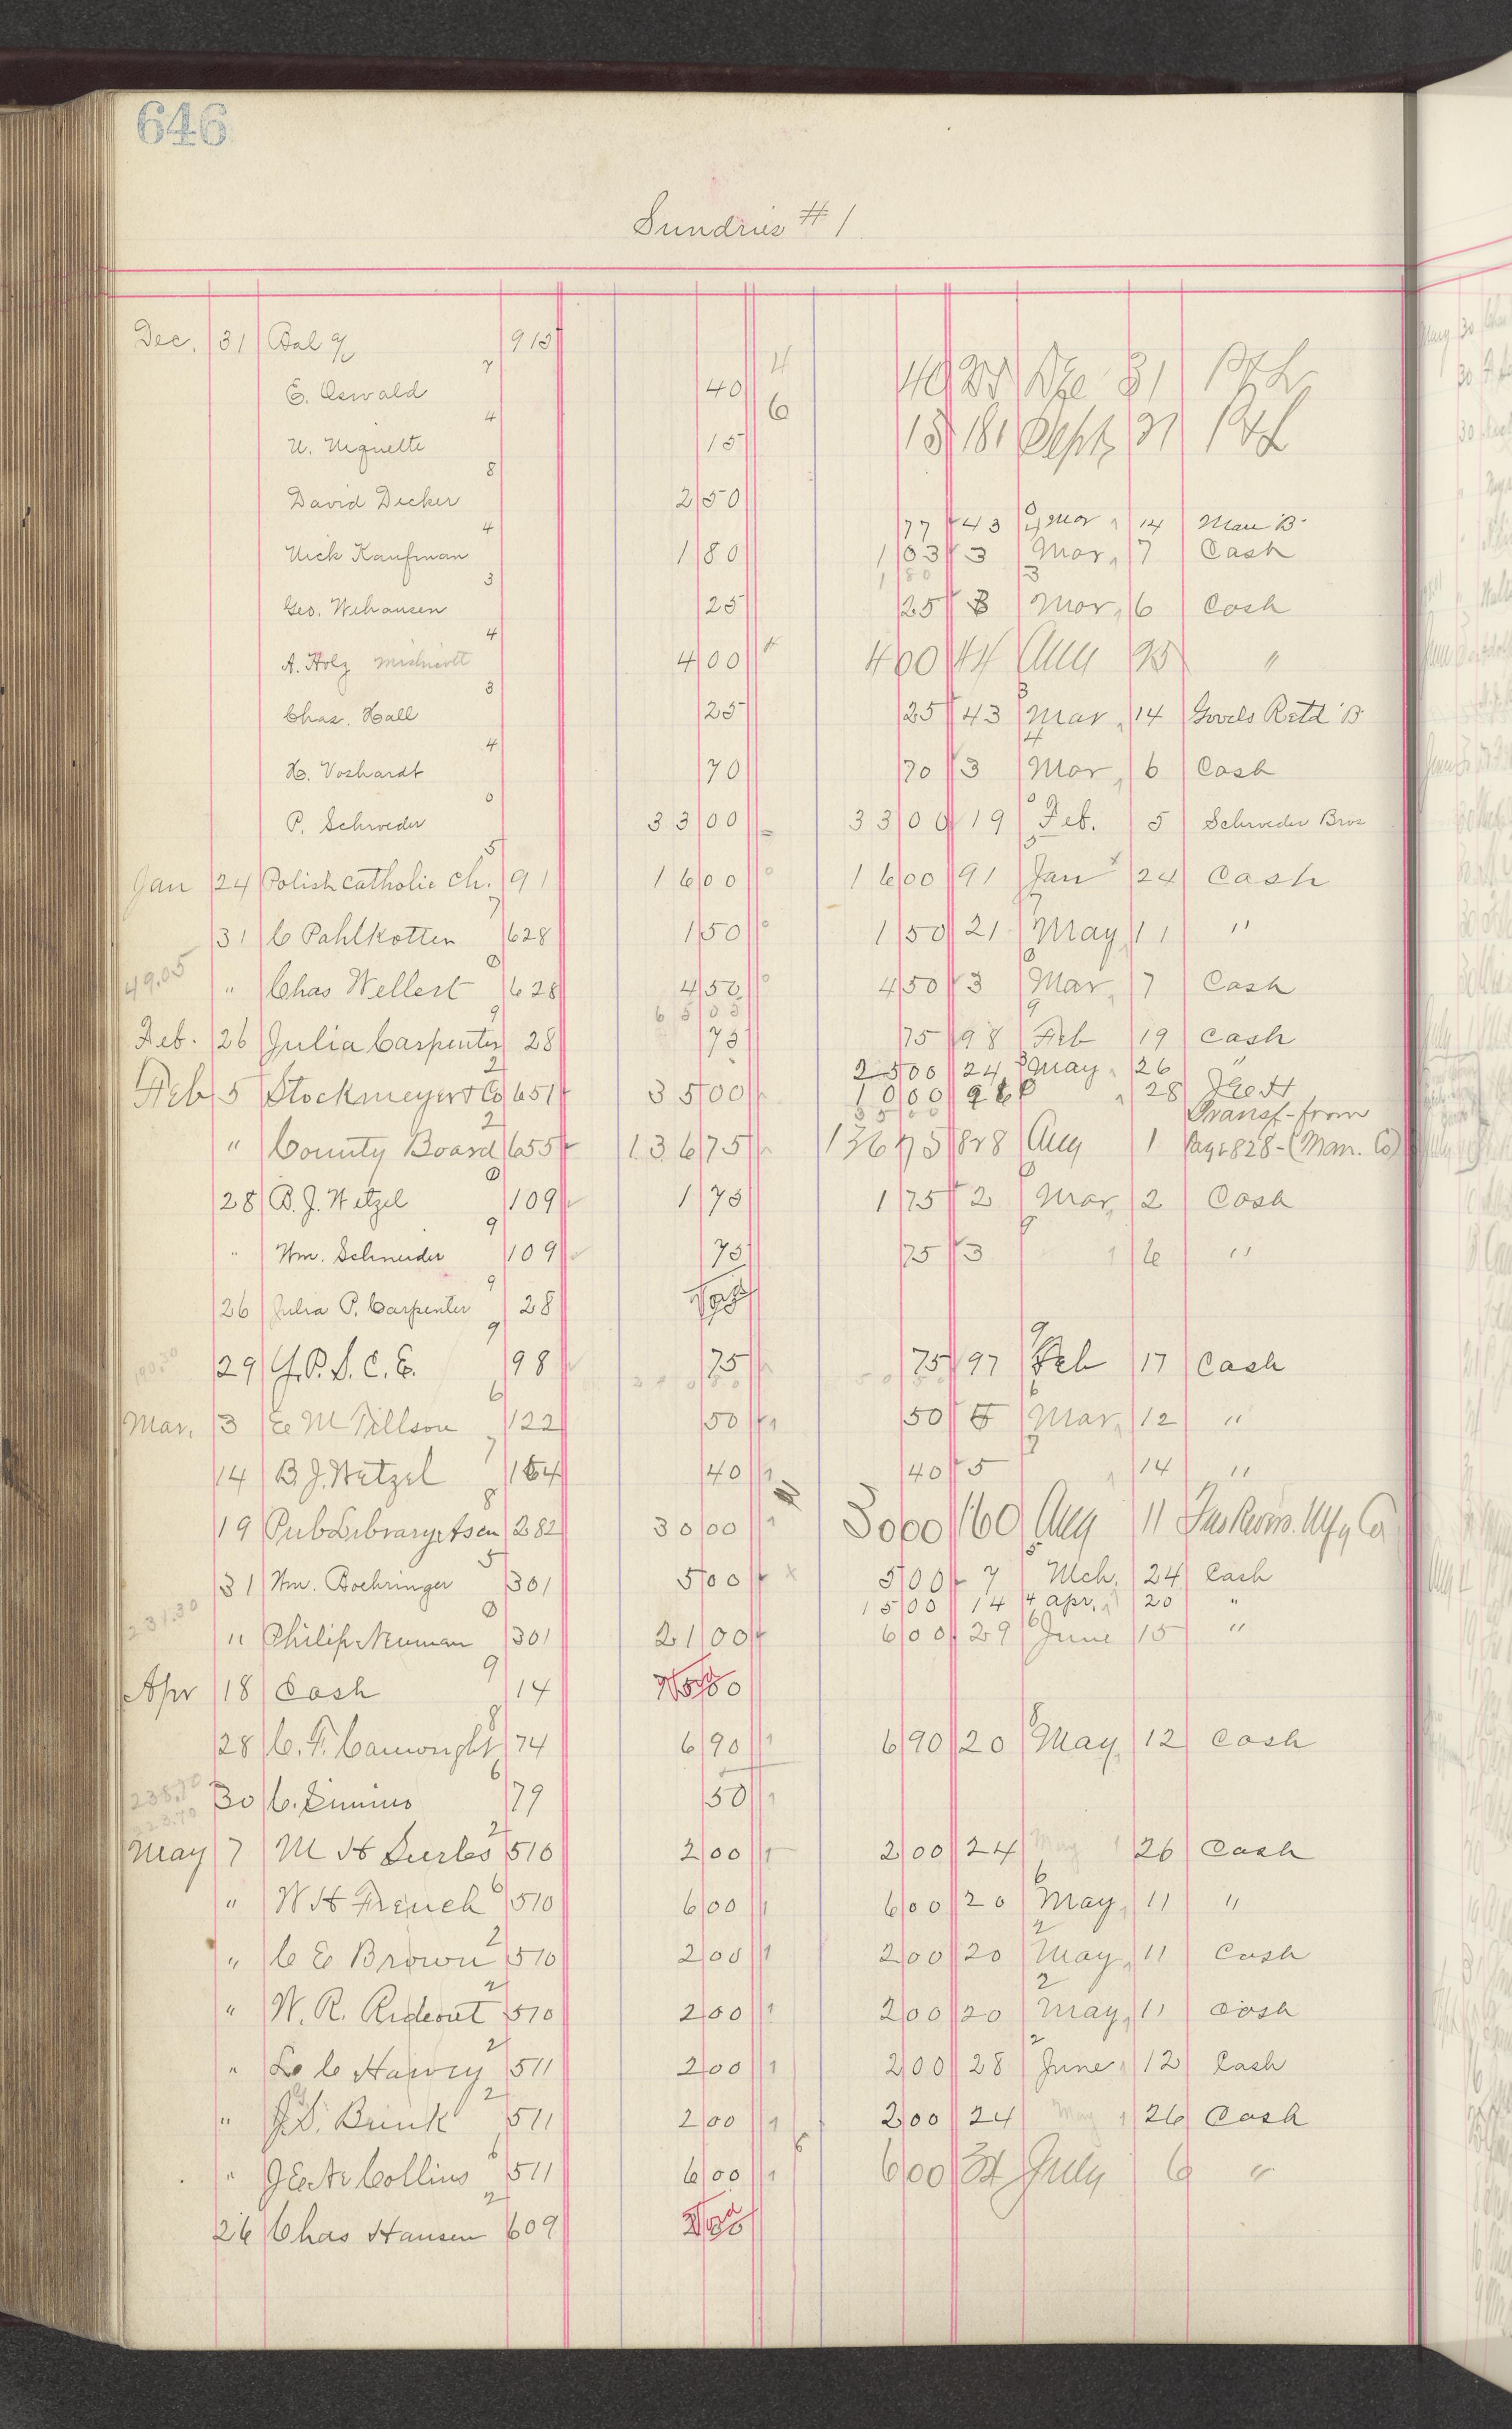 646
Sundries # 1
Dec. 31 Bal 915
E. Oswald 7 40 4 40 31 P & L
U. Uquette 4 15 6 15 181 Sept 31 P & L
David Decker 8 2 50 77 43 Mar 14 Man B
Nick Kaufman 4 1 80 1 03 3 Mar, 7 Cash
1 80
Geo. Wehausen 3 25 25 3 Mar, 6 Cash
A. Holz 4 4 00 4 00 44 Aug 25 "
Chas. Hall 3 25 25 43 Mar, 14 Goods Retd B
H. Voshardt 4 70 70 3 Mar, 6 Cash
P. Schroeder 0 33 00 33 00 19 Feb. 5 Schroeder Bros
Jan 24 Polish catholic ch. 5 91 16 00 16 00 91 Jan 24 Cash
31 C Pahlkotten 7 628 1 50 1 50 21 May 11 "
49.05 " Chas Wellert 0 628 4 50 4 50 3 Mar, 7 Cash
Feb. 26 Julia Carpenter 9 28 75 75 98 Feb 19 Cash
25 00 24 May 26 "
Feb 5 Stockmeyer & Co 2 651 35 00 10 00 28
35 00 Transf- from
" County Board 2 655 136 75 136 75 828 Aug 1 Page 828 - (Man. Co)
28 B. J. Wetzel 0 109 1 75 1 75 2 Mar, 2 Cash
" Wm. Schneider 9 109 75 75 3 6 "
26 Julia P. Carpenter 9 28
29 Y. P. S. C. E. 9 98 75 75 97 Feb 17 Cash
Mar. 3 E M Tillson 6 122 50 50 5 Mar, 12 "
14 B J. Wetzel 7 164 40 40 5 14 "
19 Pub Library Assn 8 282 30 00 30 00 160 Aug 11
31 Wm. Boehringer 5 301 5 00 5 00 7 Mch. 24 Cash
231.30 15 00 14 Apr. 20 "
" Philip Neuman 0 301 21 00 6 00 29 June 15 "
Apr 18 Cash 9 14 Void
28 C. F. Canwright 8 74 6 90 6 90 20 May, 12 Cash
238.70 30 C. Simino 6 79 50
May 7 M H Surles 2 510 2 00 2 00 24 May 26 Cash
" W H French 6 510 6 00 6 00 20 May, 11 "
" C E Brown 2 510 2 00 2 00 20 May, 11 Cash
" W. R. Rideout 2 510 2 00 2 00 20 May, 11 Cash
" L C Harvey 2 511 2 00 2 00 28 June 12 Cash
" J. D. Brink 2 511 2 00 2 00 24 May 26 Cash
" J E A Collins 6 511 6 00 6 00 34 July 6 "
26 Chas Hansen 2 609 Void